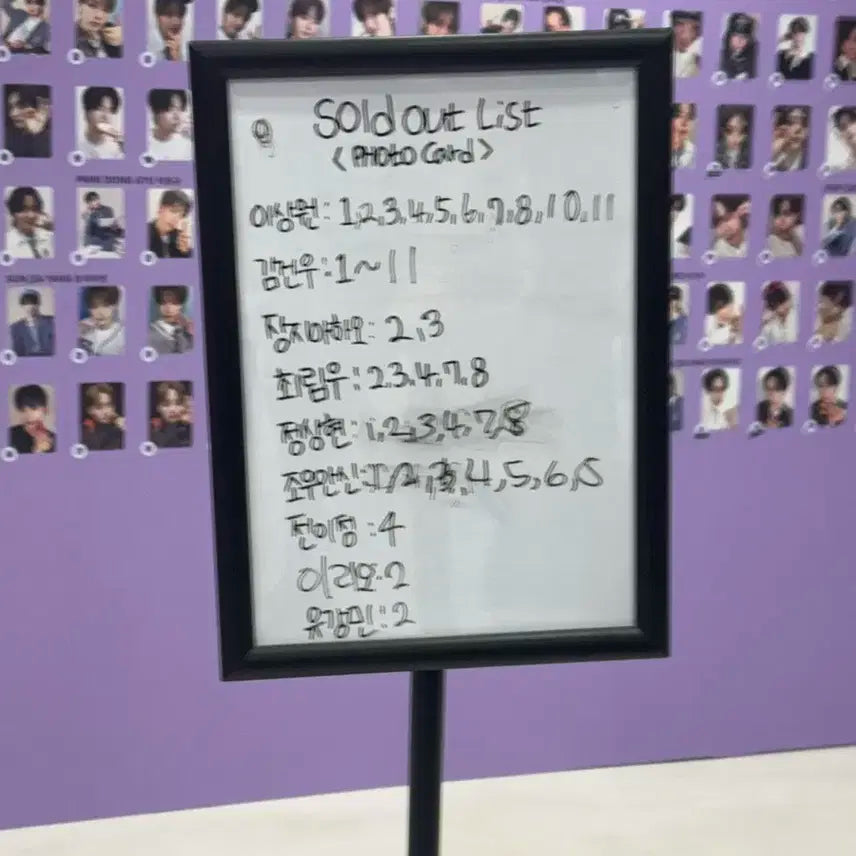 Sold out List
< PHOTO Card >
이상원: 1,2,3,4,5,6,7,8,10,11
김건우:1~11
장지아하오: 2,3
최립우:2.3.4.7.8
정상현:1,2,3,4,7,8
조우안신:1,2,3,4,5,6,5
전이정:4
이리오.2
유강민:2